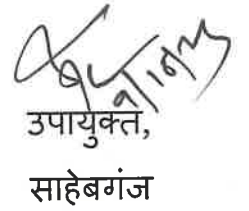 उपायुक्त,
साहेबगंज